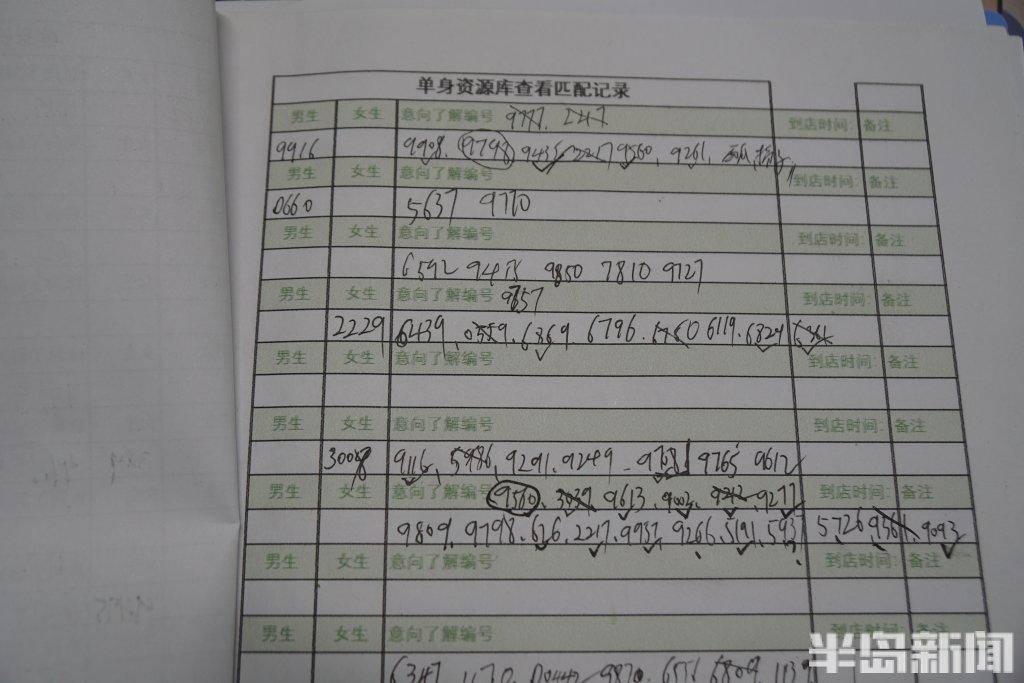 单身资源库查看匹配记录
男生 女生 意向了解编号 9777. 2217 到店时间: 备注
9916 9908. 9798 9435 2217 9560. 9261.
男生 女生 意向了解编号 到店时间: 备注
0660 5637 9770
男生 女生 意向了解编号 到店时间: 备注
6592 9475 9850 7810 9727
男生 女生 意向了解编号 9657 到店时间: 备注
2229 6439. 6369. 6796. 6119. 6324
男生 女生 意向了解编号 到店时间: 备注
男生 女生 意向了解编号 到店时间: 备注
3008 9116, 5986, 9291. 9249 9768 9765 9612
男生 女生 意向了解编号 9560. 3039 9613. 9002. 9212. 9277 到店时间: 备注
9809. 9798. 626. 2217. 9937. 9266. 5191. 5937 5726 9361. 9093
男生 女生 意向了解编号 到店时间: 备注
男生 女生 意向了解编号 到店时间: 备注
6347 9870. 6809.
半岛新闻